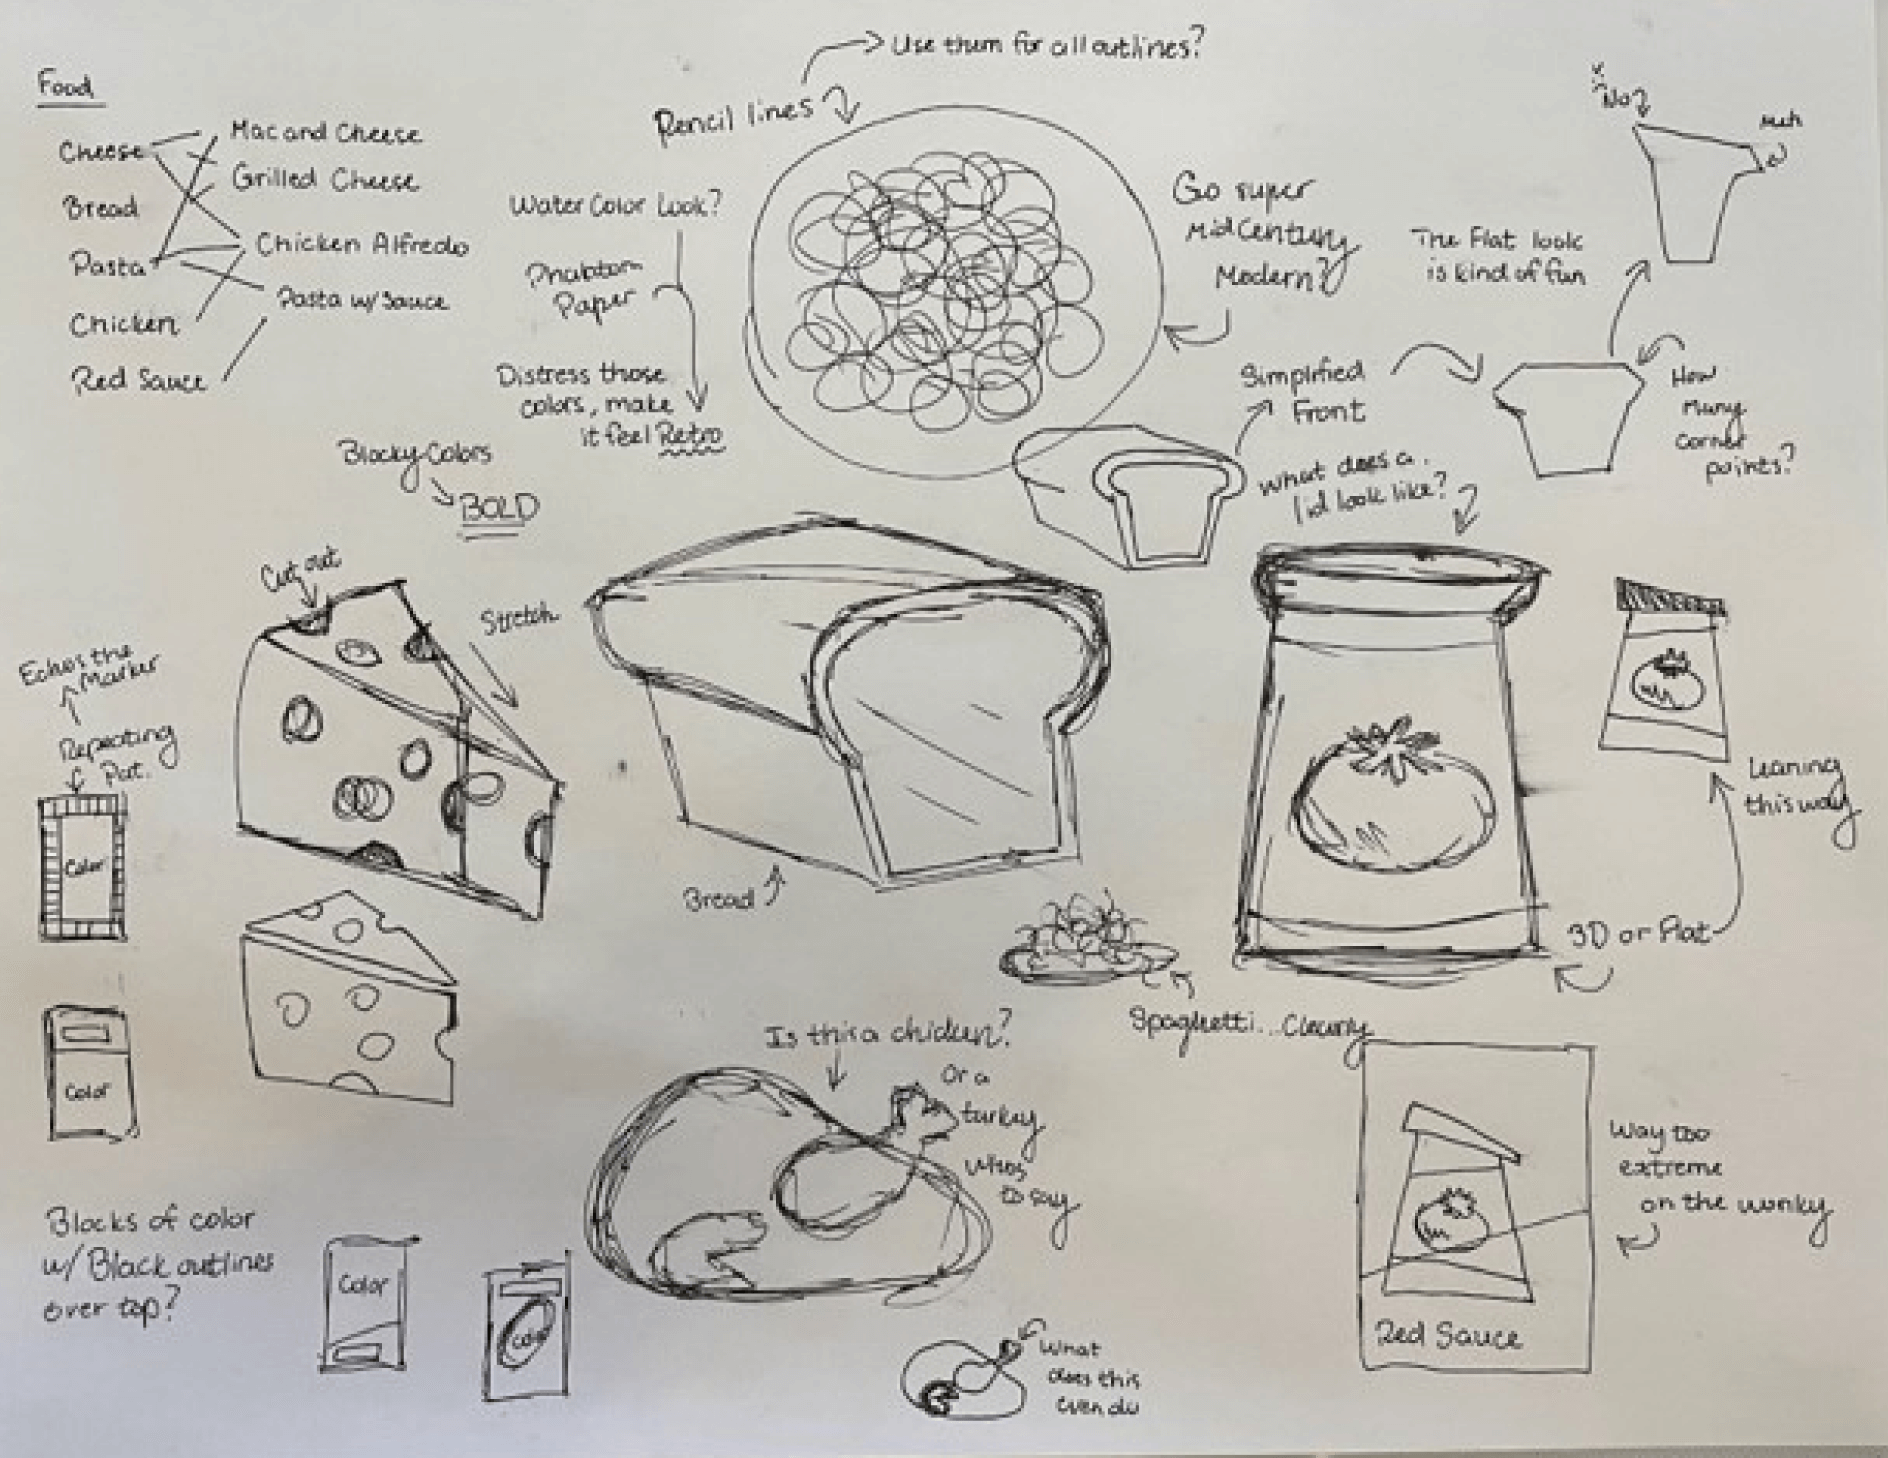 Food
Cheese
Bread
Pasta
Chicken
Red Sauce
Mac and Cheese
Grilled Cheese
Chicken Alfredo
Pasta w/ Sauce
Use them for all outlines?
Pencil lines
Water Color Look?
Paper
Distress those
colors, make
it feel Retro
Blocky Colors
BOLD
Go super
Mid Century
Modern?
The Flat look
is kind of fun
No?
Meh
Simplified
Front
How
Many
corner
points?
What does a
lid look like?
Cut out
Stretch
Echos the
Marker
Repeating
Pat.
Color
Color
Bread
Leaning
this way
3D or Flat
Spaghetti...Clearly
Is this a chicken?
Or a
turkey
Whos
to say
Way too
extreme
on the wonky
Red Sauce
Blocks of color
w/ Black outlines
over top?
Color
Color
What
does this
even do